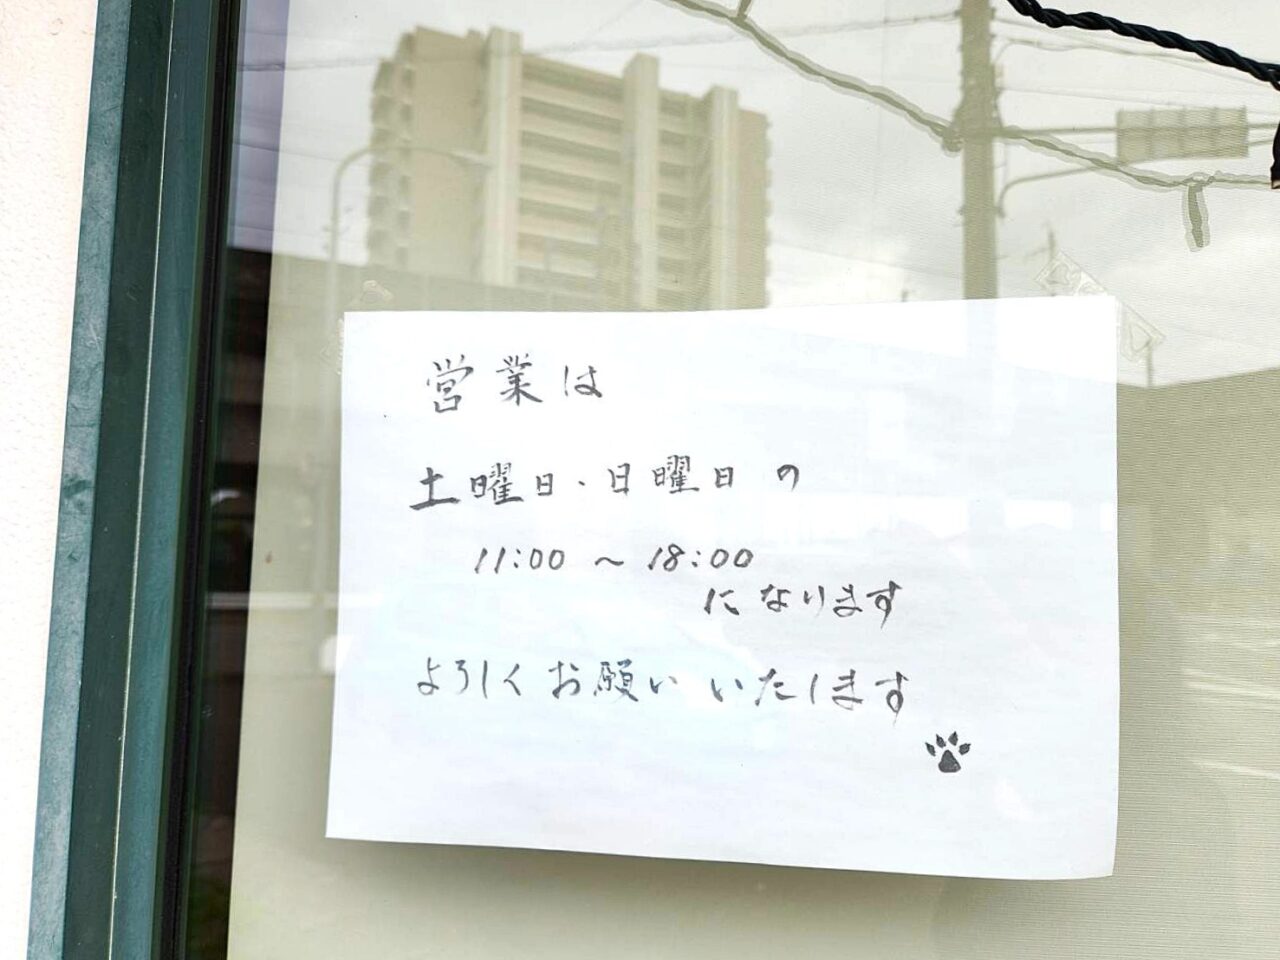 営業は
土曜日・日曜日の
11:00 ～ 18:00
になります
よろしくお願いいたします